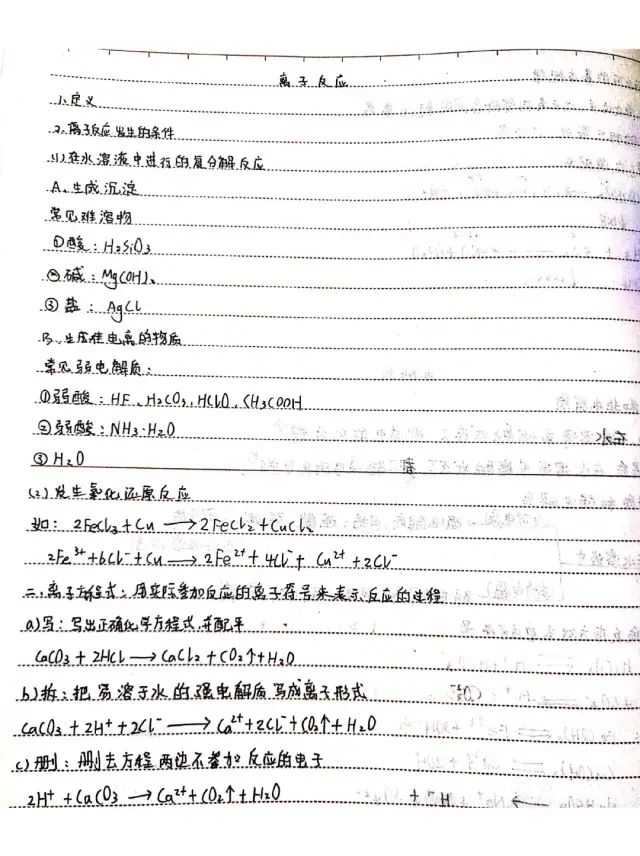 离子反应
1、定义
2、离子反应发生的条件
(1)在水溶液中进行的复分解反应
A、生成沉淀
常见难溶物
①酸：H₂SiO₃
②碱：Mg(OH)₂
③盐：AgCl
B、生成难电离的物质
常见弱电解质：
①弱酸：HF、H₂CO₃、HClO、CH₃COOH
②弱酸：NH₃·H₂O
③H₂O
(2)发生氧化还原反应
如：2FeCl₃+Cu→2FeCl₂+CuCl₂
2Fe³⁺+6Cl⁻+Cu→2Fe²⁺+4Cl⁻+Cu²⁺+2Cl⁻
二、离子方程式：用实际参加反应的离子符号来表示反应的过程
a)写：写出正确化学方程式，并配平
CaCO₃+2HCl→CaCl₂+CO₂↑+H₂O
b)拆：把易溶于水的强电解质写成离子形式
CaCO₃+2H⁺+2Cl⁻→Ca²⁺+2Cl⁻+CO₂↑+H₂O
c)删：删去方程两边不参加反应的电子
2H⁺+CaCO₃→Ca²⁺+CO₂↑+H₂O